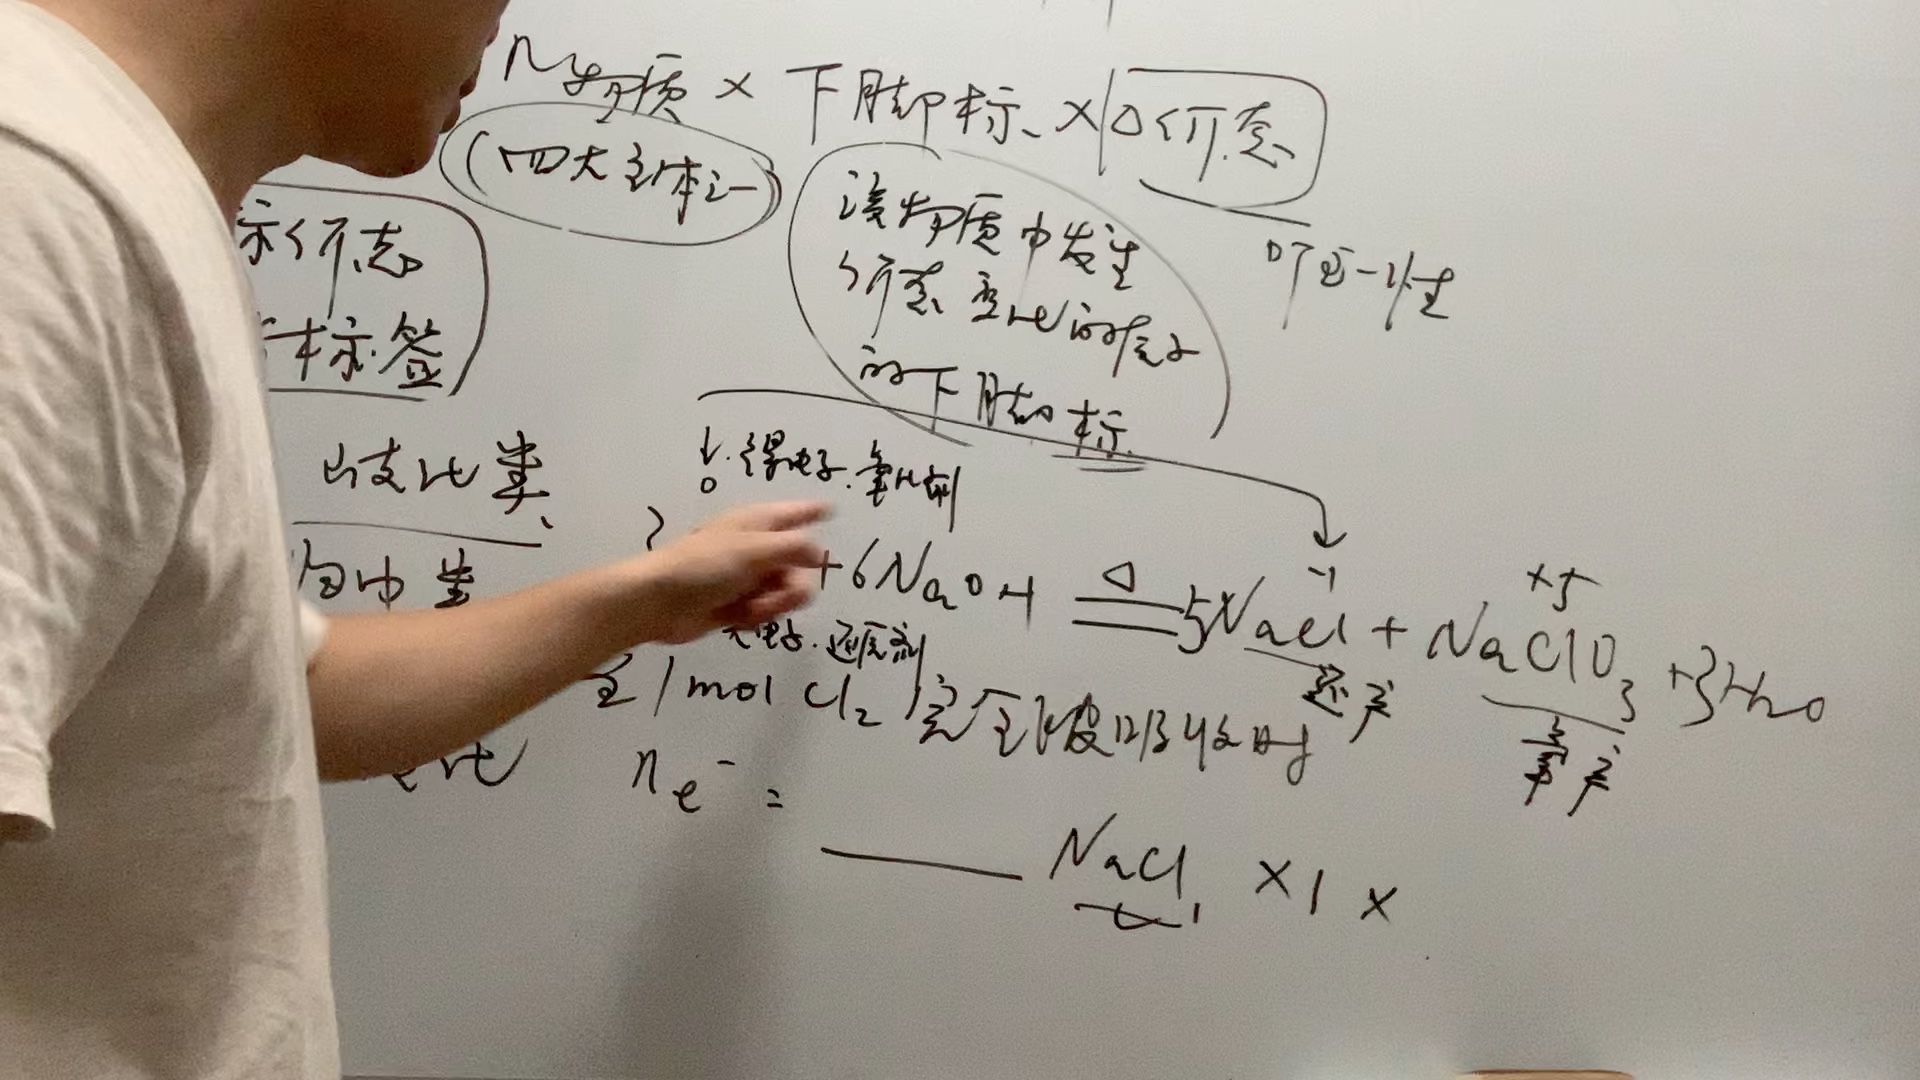 n物质 × 下脚标 × △价态
(四大主体之一)
该物质中发生
价态变化的原子
的下脚标
唯一性
标价态
标签
歧化类
↓.得电子.氧化剂
0
-1
+5
+6NaOH △ 5NaCl + NaClO3 +3H2O
失电子.还原剂
还产
氧产
1mol Cl2 完全被吸收时
ne- =
NaCl ×1 ×